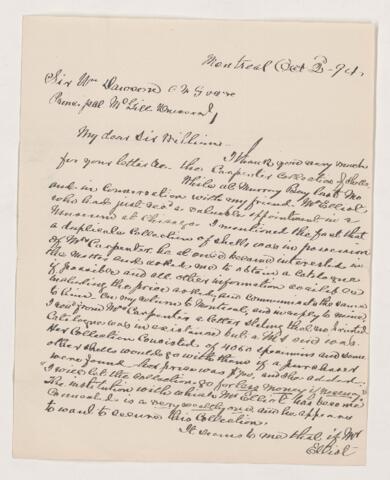 Montreal Oct 2-94.
Sir Wm Dawson
Principal McGill
My dear Sir William.
I thank you very much
for your letter re the Carpenter Collection of Shells.
While at Murray Bay last Mo
and in conversation with my friend Mr Elliot,
who had just received valuable appointment in a
Museum at Chicago I mentioned the fact that
a duplicate Collection of Shells was in possession
of Mrs Carpenter, he at once became interested in
the matter and asked me to obtain a Catalogue
if possible and all other information available
including the price asked, and communicate the same
to him. On my return to Montreal, and in reply to mine
I rec'd from Mrs Carpenter a letter stating that no printed
Catalogue was in existence but a MS one was.
Her Collection Consisted of 4040 specimens and some
other shells would go with them if purchased
were found. Her price was and she added
"I would let the Collection go for less money if necessary."
The institution with which Mr Elliot has become
Connected is a very wealthy one and he appears
to want to secure this Collection.
It seems to me that if Mr
Elliot